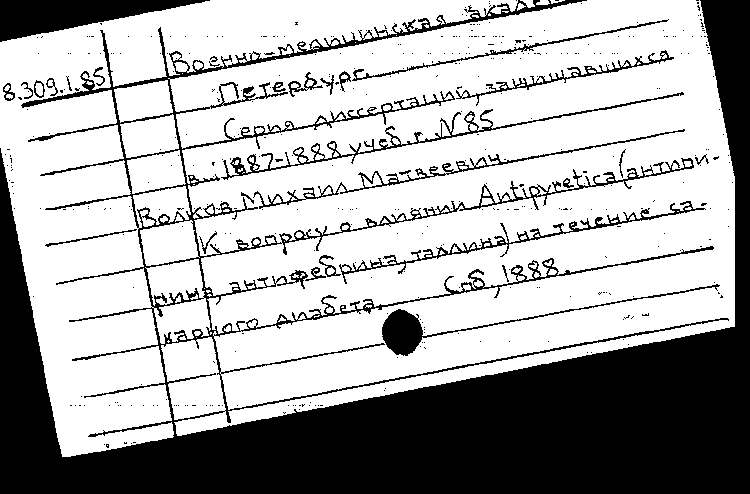 Военно-медицинская
8.309.1.85
Петербург.
Серия диссертаций, защищавшихся
в 1887-1888 учеб. г. N 85
Волков, Михаил Матвеевич.
К вопросу о влиянии Antipyretica (антипи-
рина, антифебрина, таллина) на течение са-
харного диабета. Спб, 1888.